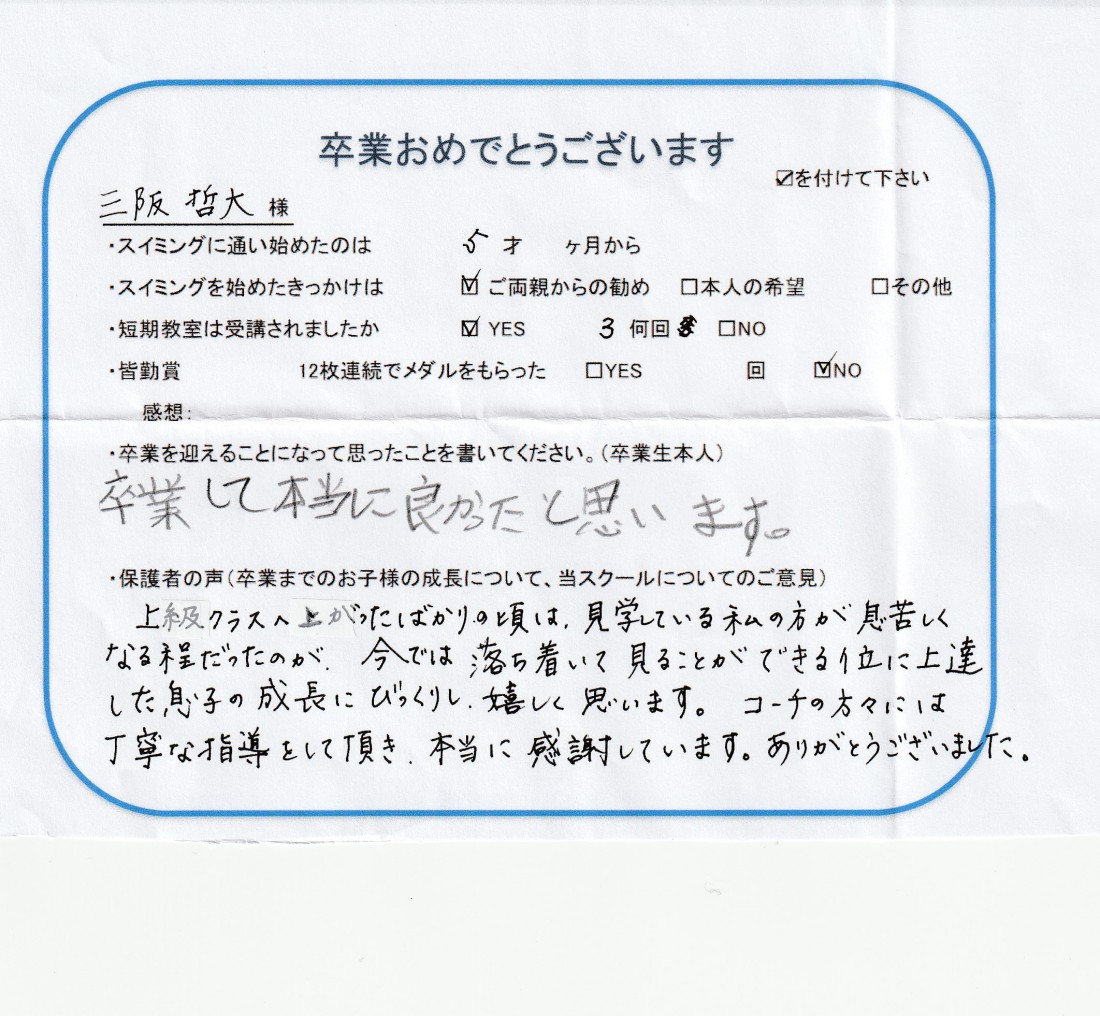 卒業おめでとうございます
☑を付けて下さい
三阪 哲大 様
・スイミングに通い始めたのは 5 才 ヶ月から
・スイミングを始めたきっかけは ☑ ご両親からの勧め □本人の希望 □その他
・短期教室は受講されましたか ☑ YES 3 何回 □NO
・皆勤賞 12枚連続でメダルをもらった □YES 回 ☑NO
感想:
・卒業を迎えることになって思ったことを書いてください。(卒業生本人)
卒業して本当に良かったと思います。
・保護者の声(卒業までのお子様の成長について、当スクールについてのご意見)
上級クラスへ上がったばかりの頃は、見学している私の方が息苦しく
なる程だったのが、今では落ち着いて見ることができる位に上達
した息子の成長にびっくりし、嬉しく思います。コーチの方々には
丁寧な指導をして頂き、本当に感謝しています。ありがとうございました。